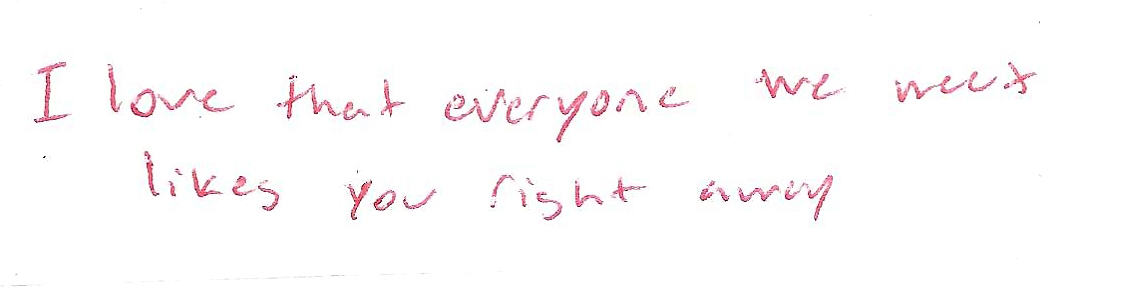 I love that everyone we meet
likes you right away